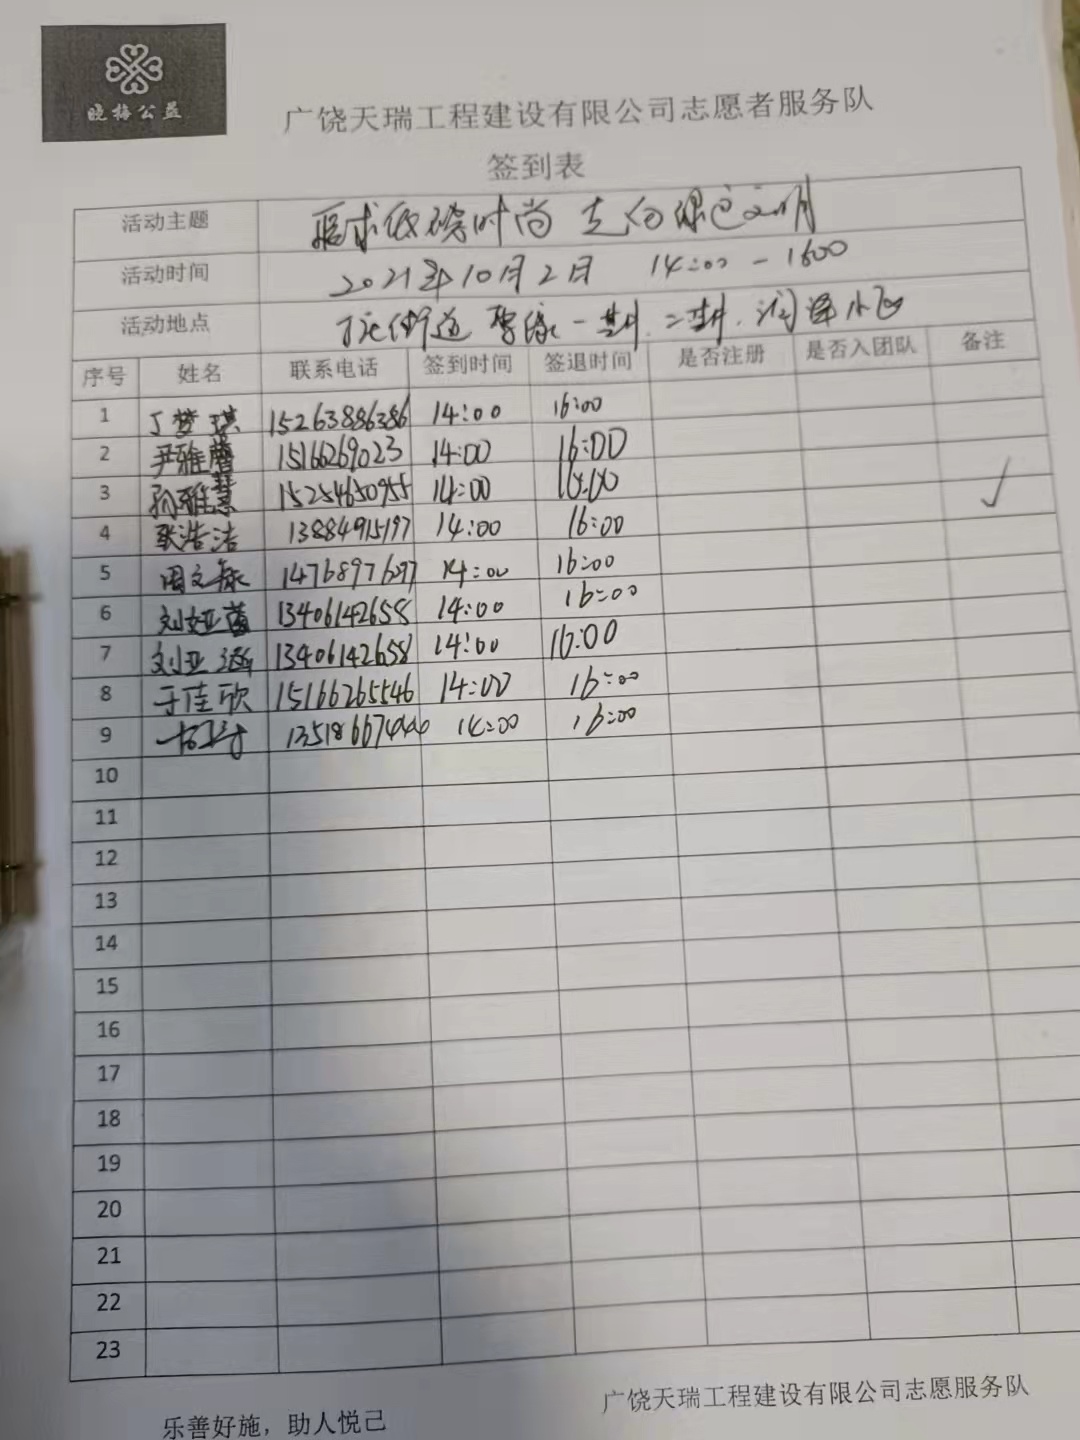 晓梅公益
广饶天瑞工程建设有限公司志愿者服务队
签到表
活动主题 追求低碳时尚 走向绿色文明
活动时间 2021年10月2日 14:00-1600
活动地点 街道 一期、二期、小区
序号 姓名 联系电话 签到时间 签退时间 是否注册 是否入团队 备注
1 丁梦琪 15263886386 14:00 16:00
2 尹雅馨 15166269023 14:00 16:00
3 孙雅慧 15254650955 14:00 16:00 ✓
4 耿浩洁 13884915197 14:00 16:00
5 周文 14768977697 14:00 16:00
6 刘娅菡 13406142658 14:00 16:00
7 刘亚涵 13406142658 14:00 16:00
8 于佳欣 15166265546 14:00 16:00
9 14:00 16:00
10
11
12
13
14
15
16
17
18
19
20
21
22
23
广饶天瑞工程建设有限公司志愿服务队
乐善好施，助人悦己